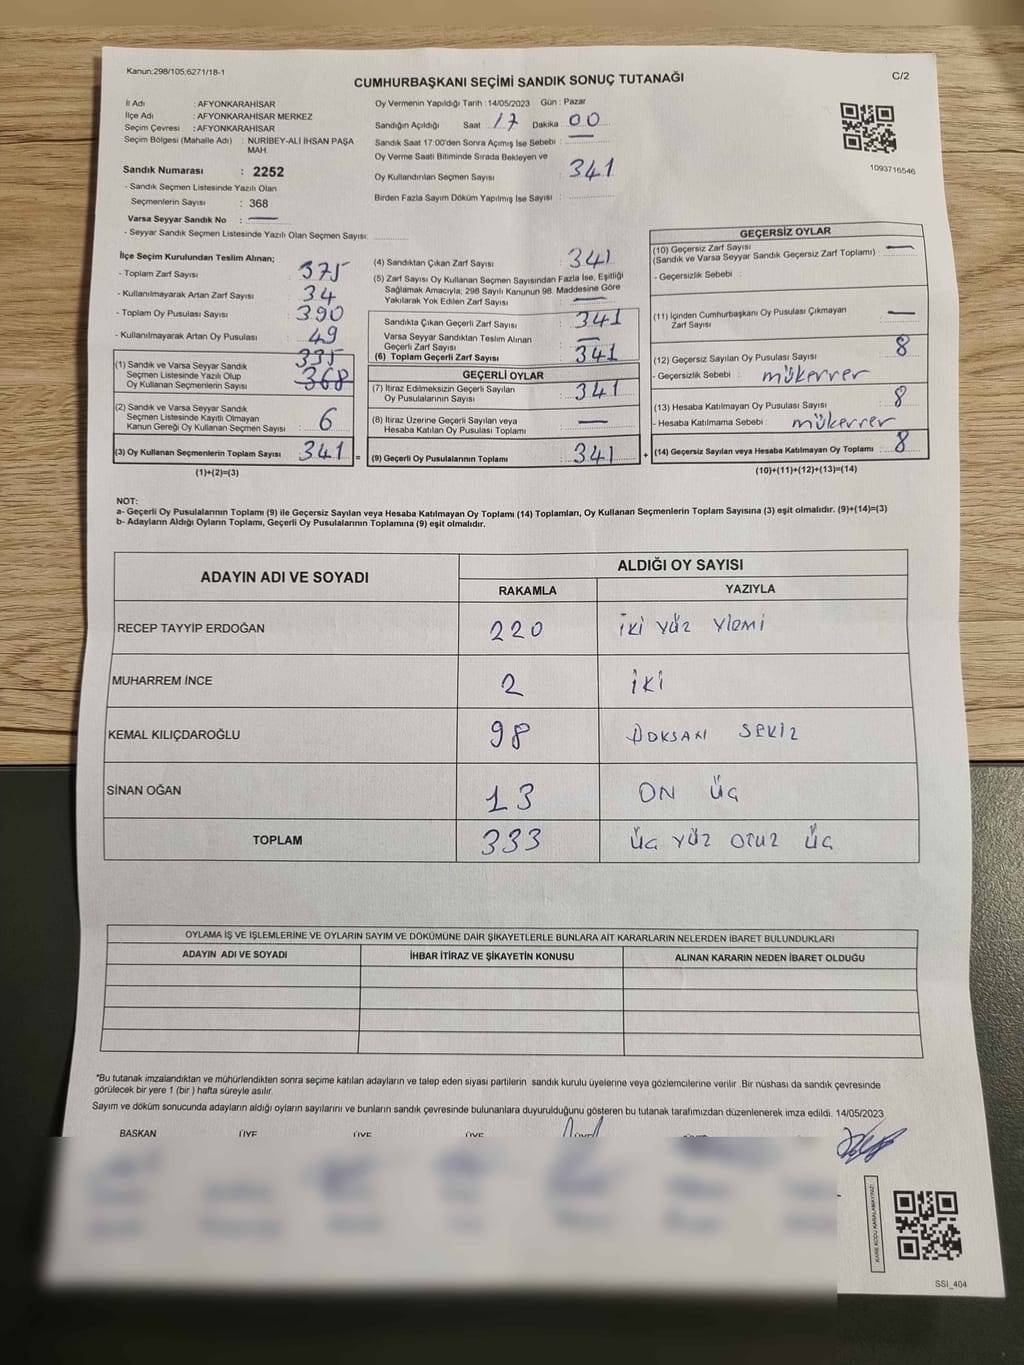 Kanun:298/105,6271/18-1
CUMHURBAŞKANI SEÇİMİ SANDIK SONUÇ TUTANAĞI
C/2
İl Adı : AFYONKARAHİSAR
İlçe Adı : AFYONKARAHİSAR MERKEZ
Seçim Çevresi : AFYONKARAHİSAR
Seçim Bölgesi (Mahalle Adı) : NURİBEY-ALİ İHSAN PAŞA
MAH
Sandık Numarası : 2252
- Sandık Seçmen Listesinde Yazılı Olan
Seçmenlerin Sayısı : 368
Varsa Seyyar Sandık No :
- Seyyar Sandık Seçmen Listesinde Yazılı Olan Seçmen Sayısı:
Oy Vermenin Yapıldığı Tarih : 14/05/2023 Gün : Pazar
Sandığın Açıldığı Saat : 17 Dakika : 00
Sandık Saat 17:00'den Sonra Açımış İse Sebebi :
Oy Verme Saati Bitiminde Sırada Bekleyen ve
Oy Kullandırılan Seçmen Sayısı : 341
Birden Fazla Sayım Döküm Yapılmış İse Sayısı :
1093716546
İlçe Seçim Kurulundan Teslim Alınan;
- Toplam Zarf Sayısı : 375
- Kullanılmayarak Artan Zarf Sayısı : 34
- Toplam Oy Pusulası Sayısı : 390
- Kullanılmayarak Artan Oy Pusulası : 49
335
(1) Sandık ve Varsa Seyyar Sandık
Seçmen Listesinde Yazılı Olup
Oy Kullanan Seçmenlerin Sayısı : 368
(2) Sandık ve Varsa Seyyar Sandık
Seçmen Listesinde Kayıtlı Olmayan
Kanun Gereği Oy Kullanan Seçmen Sayısı : 6
(3) Oy Kullanan Seçmenlerin Toplam Sayısı : 341 =
(1)+(2)=(3)
(4) Sandıktan Çıkan Zarf Sayısı : 341
(5) Zarf Sayısı Oy Kullanan Seçmen Sayısından Fazla İse, Eşitliği
Sağlamak Amacıyla; 298 Sayılı Kanunun 98. Maddesine Göre
Yakılarak Yok Edilen Zarf Sayısı :
Sandıkta Çıkan Geçerli Zarf Sayısı : 341
Varsa Seyyar Sandıktan Teslim Alınan
Geçerli Zarf Sayısı :
(6) Toplam Geçerli Zarf Sayısı : 341
GEÇERLİ OYLAR
(7) İtiraz Edilmeksizin Geçerli Sayılan
Oy Pusulalarının Sayısı : 341
(8) İtiraz Üzerine Geçerli Sayılan veya
Hesaba Katılan Oy Pusulası Toplamı :
(9) Geçerli Oy Pusulalarının Toplamı : 341 +
GEÇERSİZ OYLAR
(10) Geçersiz Zarf Sayısı
(Sandık ve Varsa Seyyar Sandık Geçersiz Zarf Toplamı) :
- Geçersizlik Sebebi :
(11) İçinden Cumhurbaşkanı Oy Pusulası Çıkmayan
Zarf Sayısı :
(12) Geçersiz Sayılan Oy Pusulası Sayısı : 8
- Geçersizlik Sebebi : mükerrer
(13) Hesaba Katılmayan Oy Pusulası Sayısı : 8
- Hesaba Katılmama Sebebi : mükerrer
(14) Geçersiz Sayılan veya Hesaba Katılmayan Oy Toplamı : 8
(10)+(11)+(12)+(13)=(14)
NOT:
a- Geçerli Oy Pusulalarının Toplamı (9) ile Geçersiz Sayılan veya Hesaba Katılmayan Oy Toplamı (14) Toplamları, Oy Kullanan Seçmenlerin Toplam Sayısına (3) eşit olmalıdır. (9)+(14)=(3)
b- Adayların Aldığı Oyların Toplamı, Geçerli Oy Pusulalarının Toplamına (9) eşit olmalıdır.
ADAYIN ADI VE SOYADI
ALDIĞI OY SAYISI
RAKAMLA YAZIYLA
RECEP TAYYİP ERDOĞAN 220 iki yüz yiRmi
MUHARREM İNCE 2 iKi
KEMAL KILIÇDAROĞLU 98 DOKSAN SEKİZ
SİNAN OĞAN 13 ON üç
TOPLAM 333 üç yüz otuz üç
OYLAMA İŞ VE İŞLEMLERİNE VE OYLARIN SAYIM VE DÖKÜMÜNE DAİR ŞİKAYETLERLE BUNLARA AİT KARARLARIN NELERDEN İBARET BULUNDUKLARI
ADAYIN ADI VE SOYADI İHBAR İTİRAZ VE ŞİKAYETİN KONUSU ALINAN KARARIN NEDEN İBARET OLDUĞU
"Bu tutanak imzalandıktan ve mühürlendikten sonra seçime katılan adayların ve talep eden siyasi partilerin sandık kurulu üyelerine veya gözlemcilerine verilir .Bir nüshası da sandık çevresinde
görülecek bir yere 1 (bir ) hafta süreyle asılır.
Sayım ve döküm sonucunda adayların aldığı oyların sayılarını ve bunların sandık çevresinde bulunanlara duyurulduğunu gösteren bu tutanak tarafımızdan düzenlenerek imza edildi. 14/05/2023
BAŞKAN ÜYE ÜYE ÜYE
KARE KODU KARALAMAYINIZ!
SSI_404